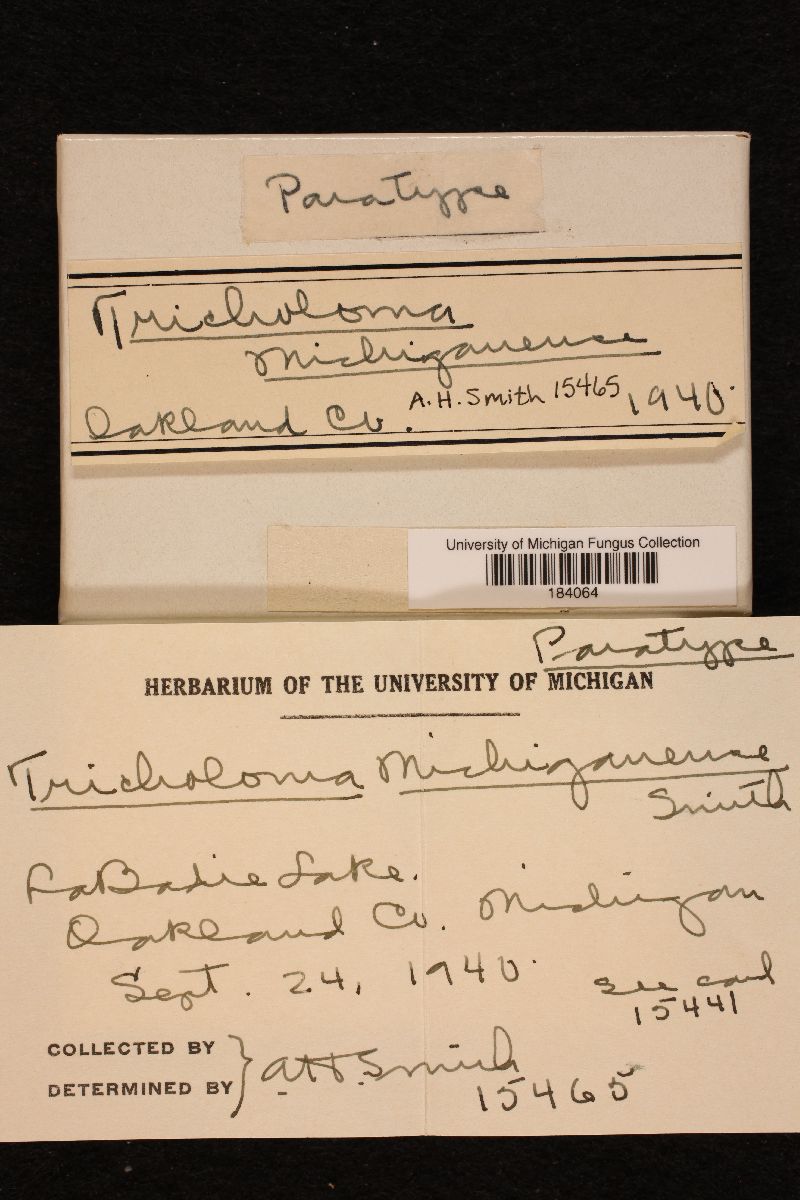 Paratype
Tricholoma
michiganense
Oakland Co. A.H. Smith 15465 1940.
University of Michigan Fungus Collection
184064
Paratype
HERBARIUM OF THE UNIVERSITY OF MICHIGAN
Tricholoma Michiganense
Smith
LaBadie Lake.
Oakland Co. Michigan
Sept. 24, 1940.
See card
15441
COLLECTED BY
DETERMINED BY
AH Smith
15465